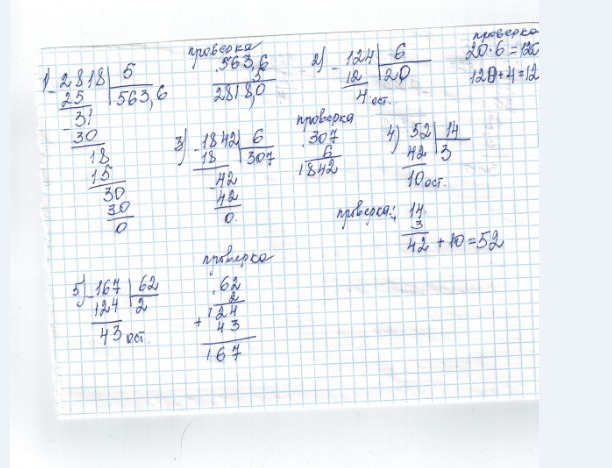 1) - 2818 | 5
25 563,6
- 31
30
18
15
30
30
0
проверка
. 563,6
5
2818,0
2) - 124 | 6
12 20
4 ост.
проверка
20·6=120
120+4=12
3) - 1842 | 6
18 307
. 42
42
0
проверка
. 307
6
1842
4) 52 | 14
42 3
10 ост.
проверка:
14
3
42 + 10 = 52
5) - 167 | 62
124 2
43 ост.
проверка
. 62
2
124
+ 43
167